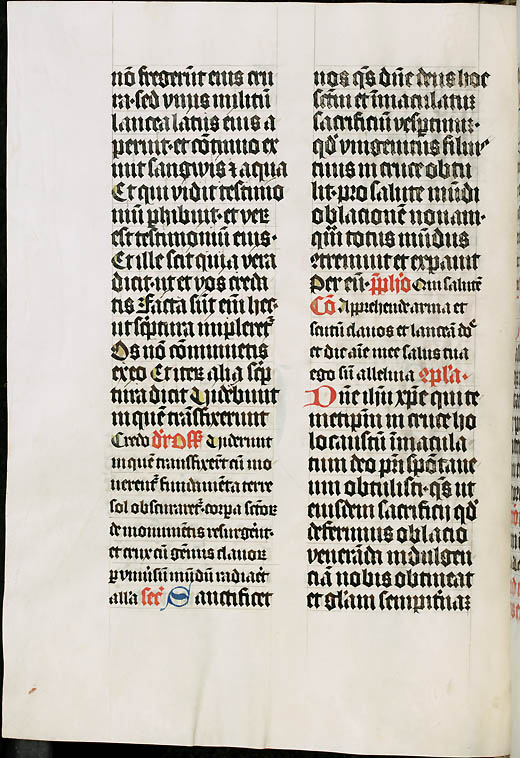 nō fregerūt eius cru
ra · sed vnus militū
lancea latus eius a
peruit · et cōtinuo ex
iuit sangwis ⁊ aqua
Et qui vidit testimo
niū phibuit · et verū
est testimoniū eius ·
Et ille scit quia vera
dicit · ut et vos creda
tis Facta sūt eīm hec ·
ut scptura impleret᷑
Os nō cōminuetis
ex eo Et iterū alia scp
tura dicit Videbunt
in quem trāsfixerunt
Credo Off Viderunt
in quem transfixerūt cū mo
uerent᷑ fundamēta terre
sol obscuraret᷑ · corpa sctorꝫ
de monumētis resurgerēt ·
et crux cū gēmis clauorꝫ
p vniūsum mūdū radiaret
alla Secᵗ Sanctificet
nos qs dn̄e deus hoc
sctm et īmaculatum
sacrificiū vesptinum ·
qd vnigenitus filius
tuus in cruce obtu
lit · pro salute mūdi
oblacionē nouam ·
quā totus mūdus
extremuit et expauit
Per eūd · pphō Qui salutē
Cō Apprehende arma et
scutū clauos et lanceā dōe
et dic aīe mee salus tua
ego sū alleluia cpsla ·
Dn̄e ihū xpe qui te
metipm in cruce ho
locaustū īmacula
tum deo pr̄i spōtane
um obtulisti · qs ut
eiusdem sacrificij qd
deferimus oblacio
venerādi indulgen
ciā nobis obtineat
et glam sempit᷑nam